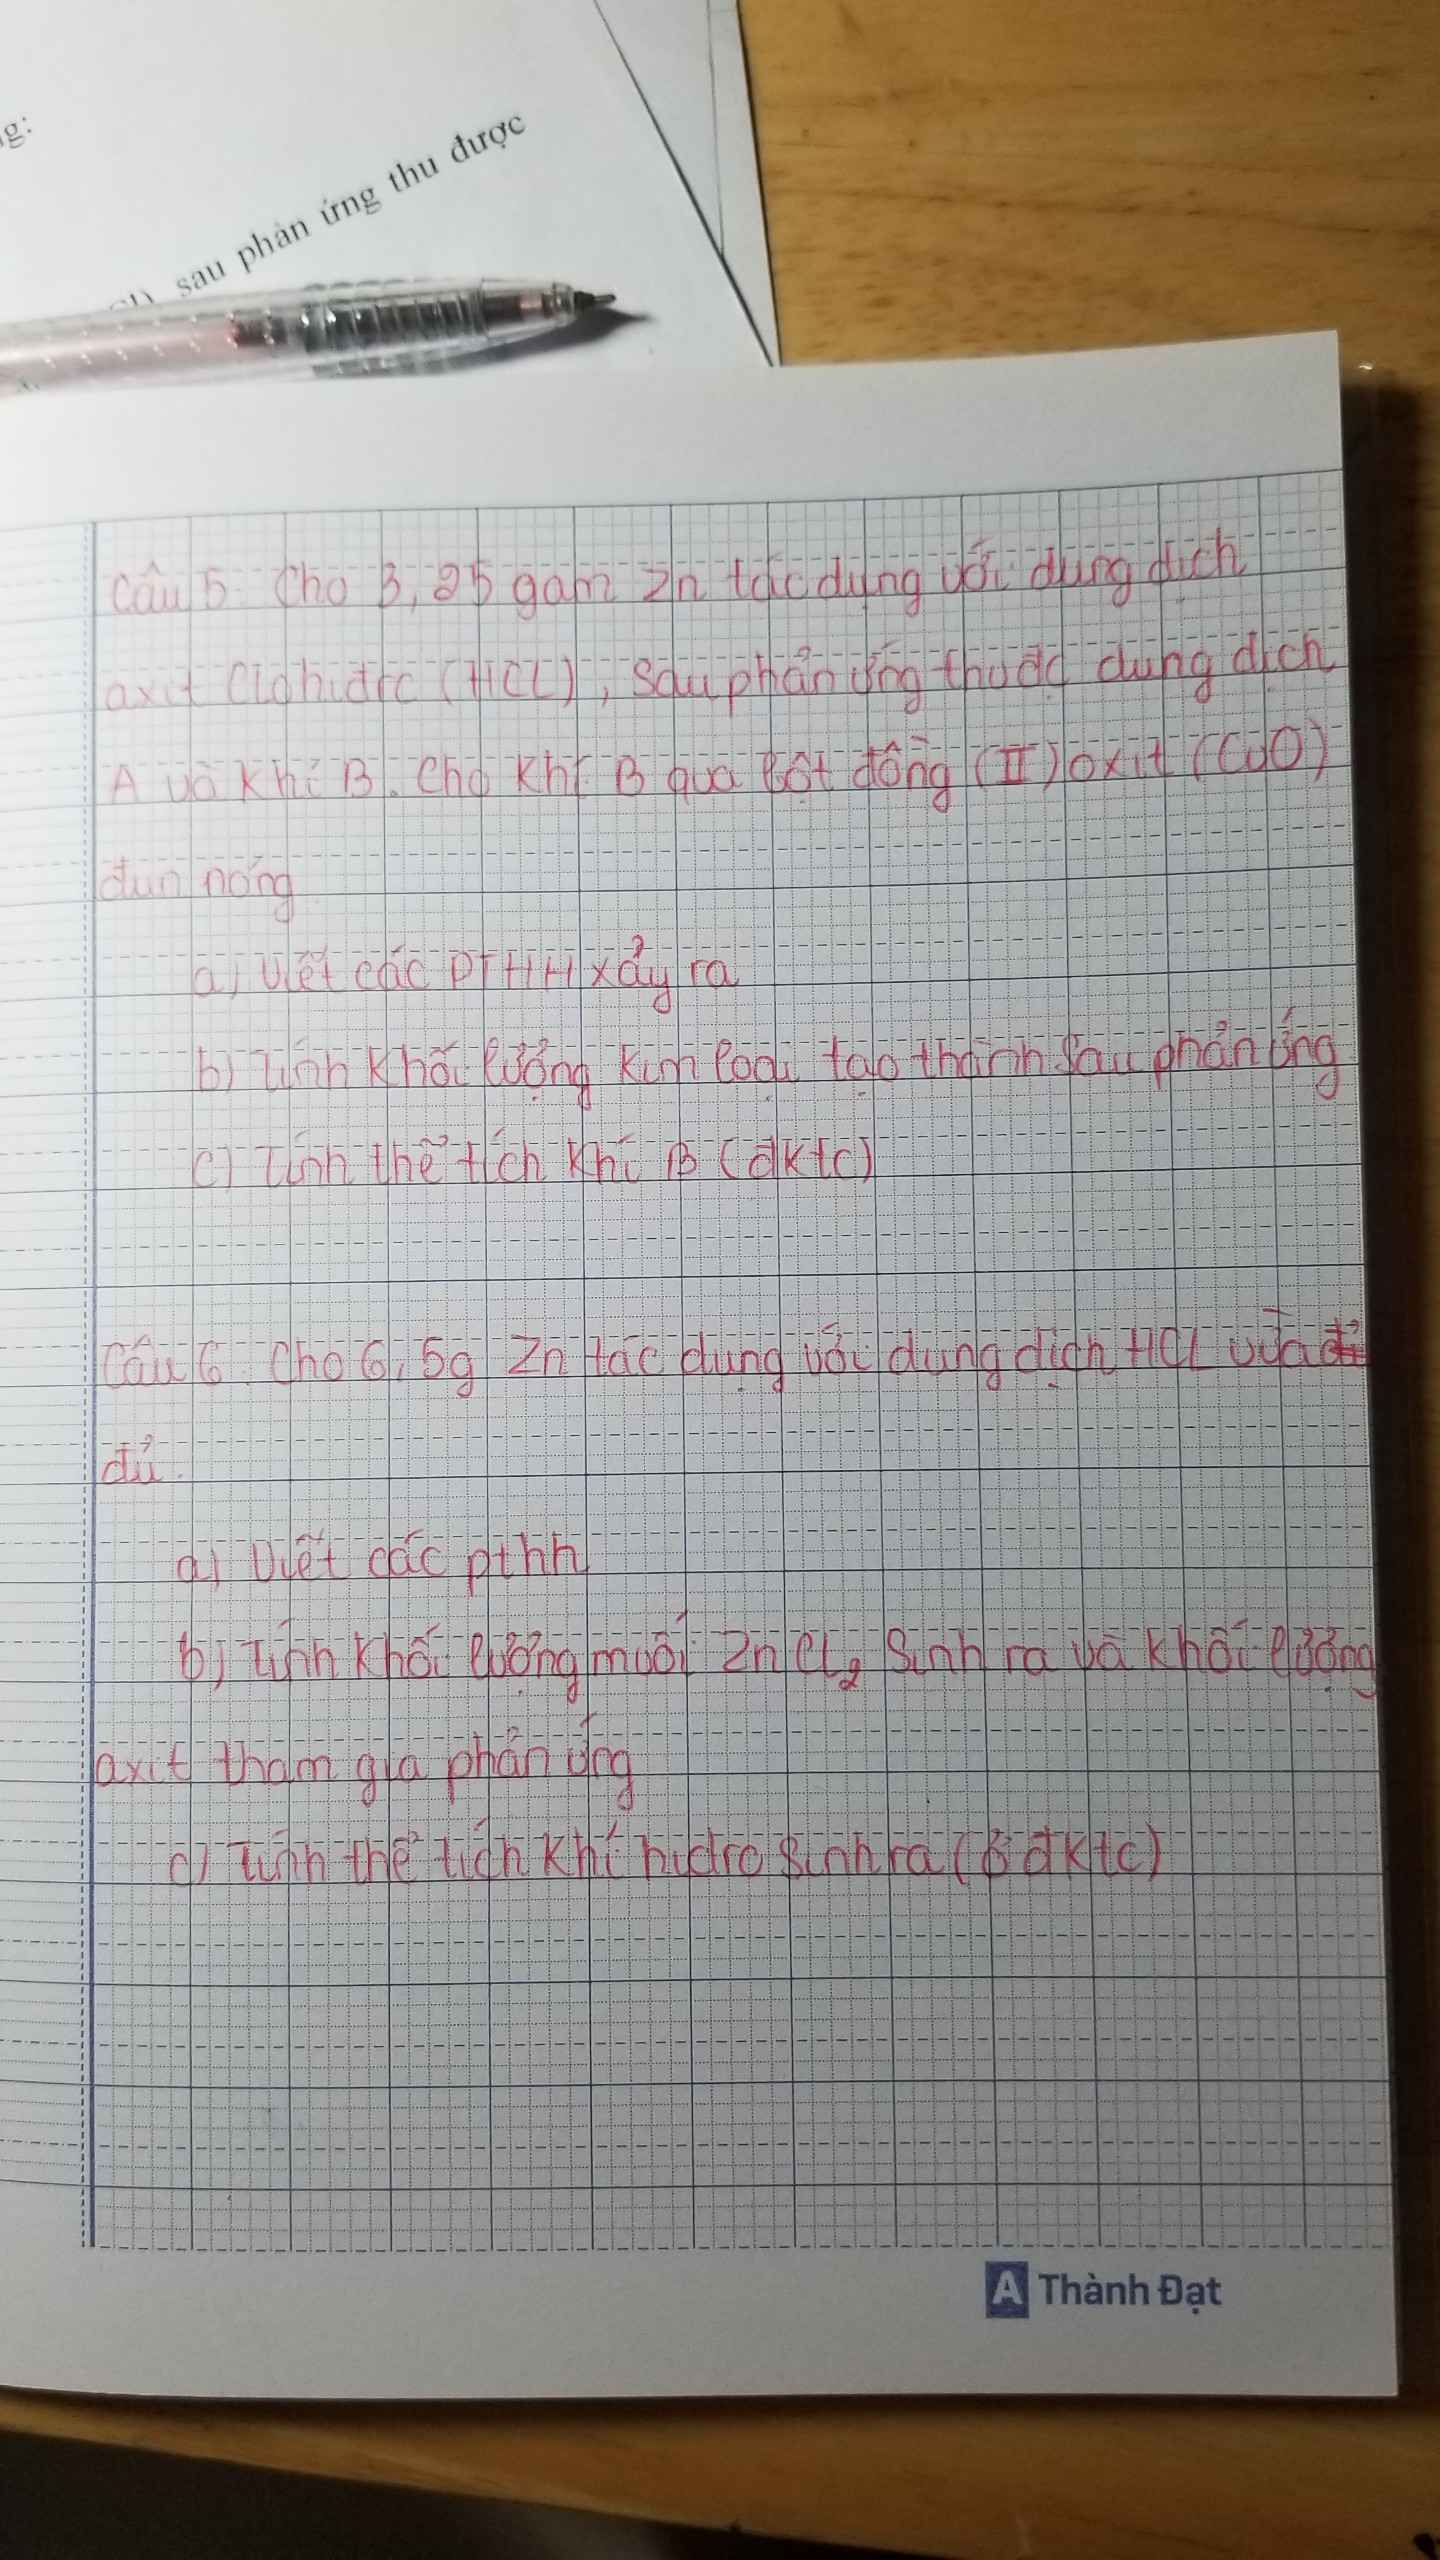 g:
sau phản ứng thu được
Câu 5. Cho 3,25 gam Zn tác dụng với dung dịch
axit Clohiđric (HCL), sau phản ứng thu đc dung dịch
A và khí B. Cho khí B qua bột đồng (II) oxit (CuO)
đun nóng
a) Viết các PTHH xảy ra
b) Tính khối lượng kim loại tạo thành sau phản ứng
c) Tính thể tích khí B (đktc)
Câu 6. Cho 6,5g Zn tác dụng với dung dịch HCL vừa
đủ.
a) Viết các pthh
b) Tính khối lượng muối ZnCl₂ sinh ra và khối lượng
axit tham gia phản ứng
c) Tính thể tích khí hidro sinh ra (ở đktc)
A Thành Đạt